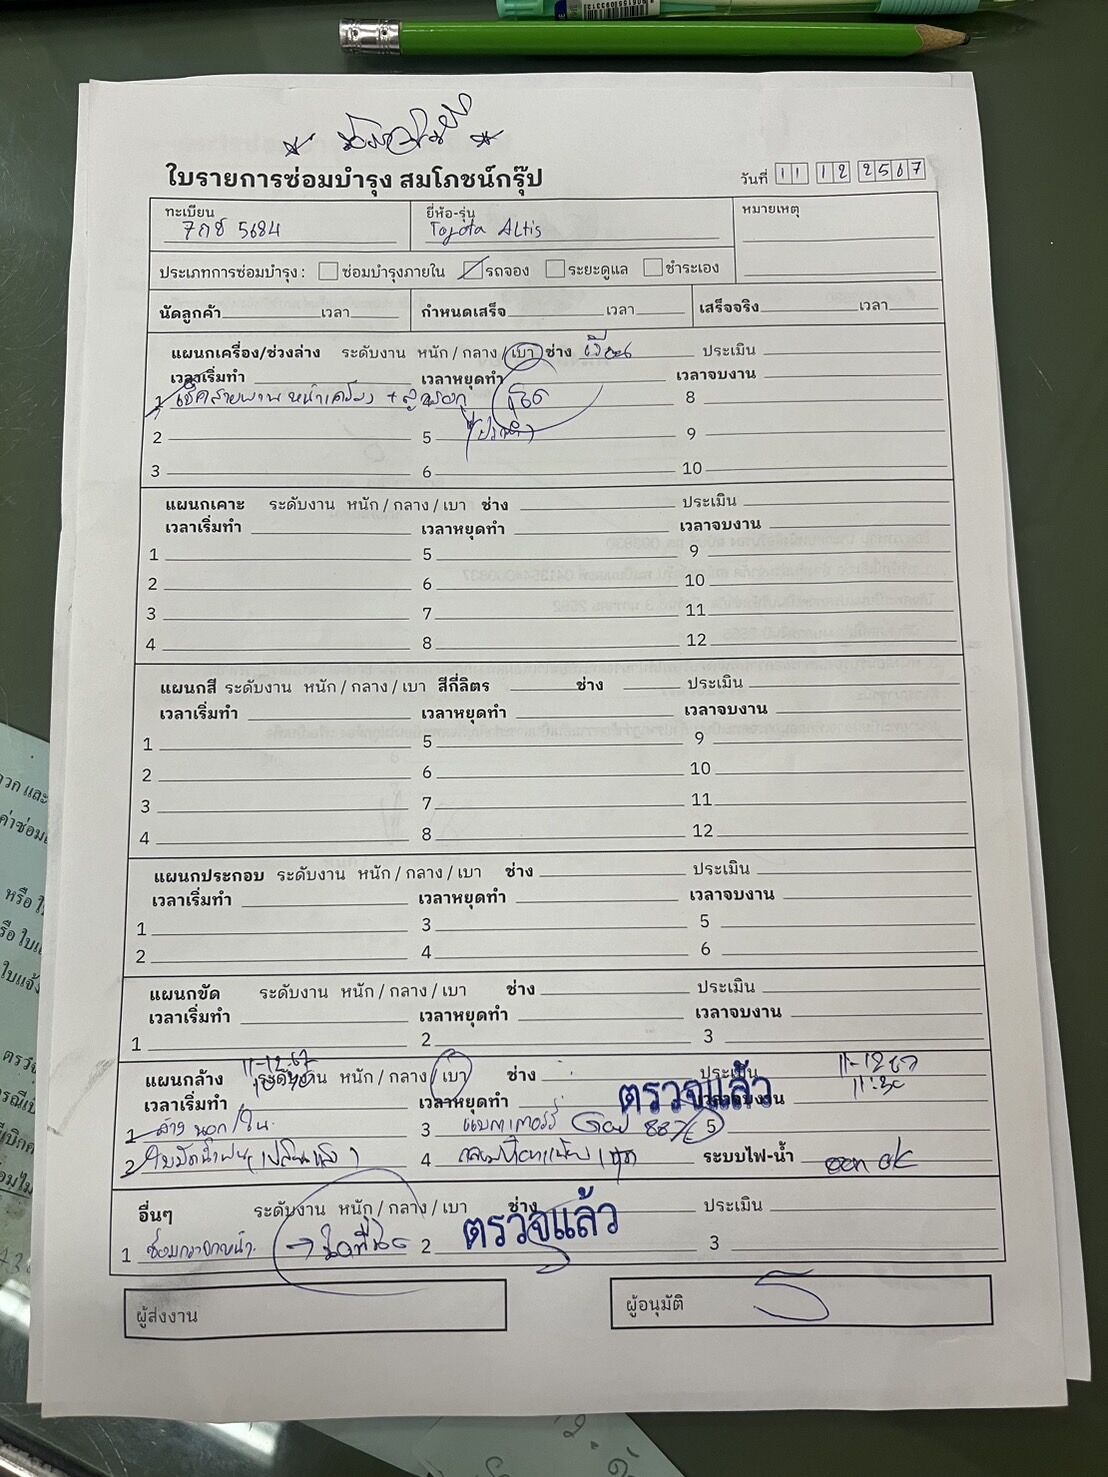 ใบรายการซ่อมบำรุง สมโภชน์กรุ๊ป
วันที่ 11 12 2567
ทะเบียน ยี่ห้อ-รุ่น หมายเหตุ
7กช 5684 Toyota Altis
ประเภทการซ่อมบำรุง : ซ่อมบำรุงภายใน รถจอง ระยะดูแล ชำระเอง
นัดลูกค้า เวลา กำหนดเสร็จ เวลา เสร็จจริง เวลา
แผนกเครื่อง/ช่วงล่าง ระดับงาน หนัก / กลาง / เบา ช่าง ประเมิน
เวลาเริ่มทำ เวลาหยุดทำ เวลาจบงาน
1 เช็คสายพาน หน้าเครื่อง + ลูกรอก 4 8
2 5 9
3 6 10
แผนกเคาะ ระดับงาน หนัก / กลาง / เบา ช่าง ประเมิน
เวลาเริ่มทำ เวลาหยุดทำ เวลาจบงาน
1 5 9
2 6 10
3 7 11
4 8 12
แผนกสี ระดับงาน หนัก / กลาง / เบา สีกี่ลิตร ช่าง ประเมิน
เวลาเริ่มทำ เวลาหยุดทำ เวลาจบงาน
1 5 9
2 6 10
3 7 11
4 8 12
แผนกประกอบ ระดับงาน หนัก / กลาง / เบา ช่าง ประเมิน
เวลาเริ่มทำ เวลาหยุดทำ เวลาจบงาน
1 3 5
2 4 6
แผนกขัด ระดับงาน หนัก / กลาง / เบา ช่าง ประเมิน
เวลาเริ่มทำ เวลาหยุดทำ เวลาจบงาน
1 2 3
11-12-67 11-12 67
แผนกล้าง ระดับงาน หนัก / กลาง / เบา ช่าง ประเมิน 11:30
เวลาเริ่มทำ เวลาหยุดทำ ตรวจแล้ว เวลาจบงาน
1 ล้าง นอก/ใน 3 แบตเตอรี่ 88% 5
2 ใบปัดน้ำฝน (เปลี่ยนแล้ว) 4 ระบบไฟ-น้ำ ok
อื่นๆ ระดับงาน หนัก / กลาง / เบา ช่าง ตรวจแล้ว ประเมิน
1 ซ่อมกระจกหน้า 2 3
ผู้ส่งงาน ผู้อนุมัติ